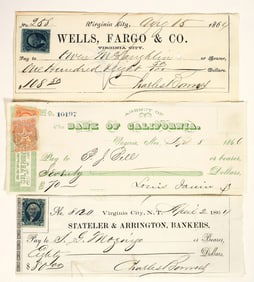 No. 255 Virginia City, Aug 15 186
WELLS, FARGO & CO.
VIRGINIA CITY.
Pay to or Bearer,
One Hundred Eight Dollars,
$108.50 Charles Bonner
AGENCY OF
No. 10197 THE BANK OF CALIFORNIA.
Virginia, 186
Pay to or bearer
Seventy Dollars,
$70 Louis Janin Jr
No. Virginia City, N.T. April 2 186
STATELER & ARRINGTON, BANKERS,
Pay to or Bearer,
Eighty Dollars,
$80.00 Charles Bonner